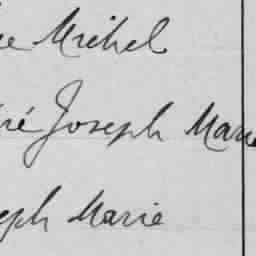 ie Michel
ré Joseph Marie
eph Marie